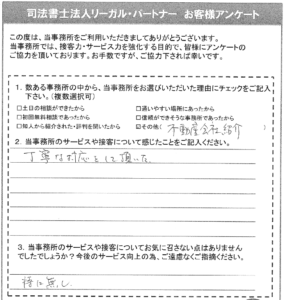 司法書士法人リーガル・パートナー　お客様アンケート
この度は、当事務所をご利用いただきましてありがとうございます。
当事務所では、接客力・サービス力を強化する目的で、皆様にアンケートの
ご協力を頂いております。お手数ですが、ご協力下されば幸いです。
1. 数ある事務所の中から、当事務所をお選びいただいた理由にチェックをご記入
下さい。（複数選択可）
□土日の相談ができたから　□通いやすい場所にあったから
□初回無料相談であったから　□信頼ができそうな事務所であったから
□知人から紹介された・評判を聞いたから　☑その他( 不動産会社紹介
2. 当事務所のサービスや接客について感じたことをご記入ください。
丁寧な対応をして頂いた
3. 当事務所のサービスや接客についてお気に召さない点はありません
でしたでしょうか？今後のサービス向上の為、ご遠慮なくご指摘ください。
特に無し